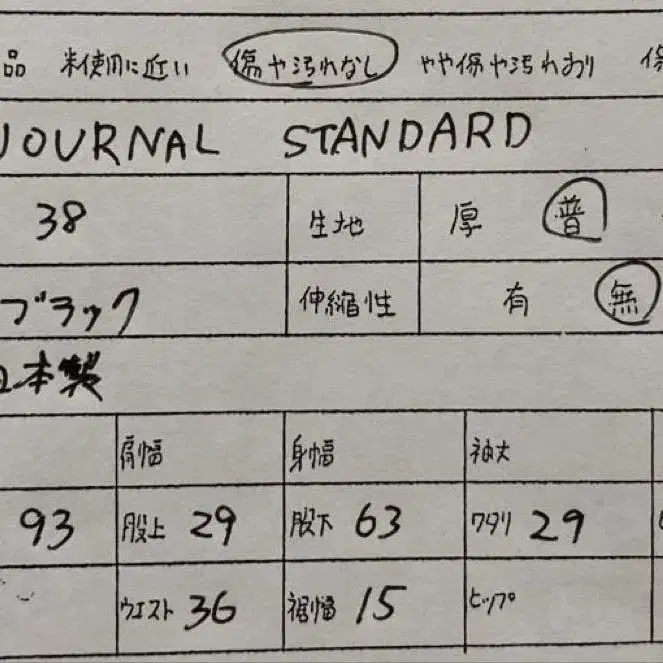 品 未使用に近い 傷や汚れなし やや傷や汚れあり 傷
JOURNAL STANDARD
38 生地 厚 普
ブラック 伸縮性 有 無
日本製
肩幅 身幅 袖丈
93 股上 29 股下 63 ワタリ 29
ウエスト 36 裾幅 15 ヒップ